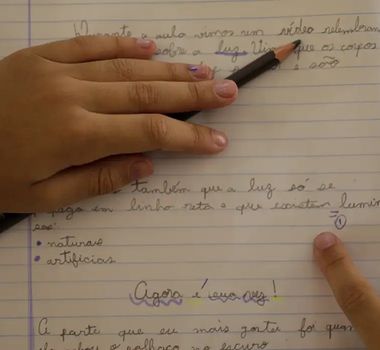 Durante a aula vimos um vídeo relembran
sobre a luz. Vimos que os corpos
e são
também que a luz só se
paga em linha reta e que existem lumin
sas:
① 
• naturais
• artificiais
Agora é sua vez!
A parte que eu mais gostei foi quan
o palhaço no escuro